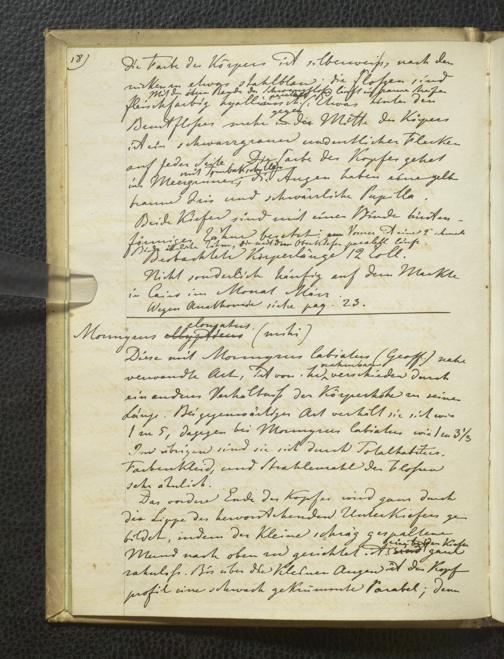 18)
Die Farbe des Körpers ist silberweiss, nach dem
rücken an etwas stahlblau; die Flossen sind
fleischfarbig hyallinisch. Etwas hinter den
Brustflossen mehr gegen die Mitte des Körpers
ist ein schwarzgrauer undeutlicher Flecken
auf jeder Seite. Die Farbe des Kopfes gehet
in Meergrünes, die Augen haben eine gelb
braune Iris und schwärzliche Pupille.
Beide Kiefer sind mit einer Binde bürsten-
förmiger Zähne besetzt;
Beobachtete Körperlänge 12 Zoll.
Nicht sonderlich häufig auf dem Markte
in Cairo im Monat März.
Wegen Anathomie siehe pag. 23.
elongatus.
Mormyrus (mihi)
Diese mit Mormyrus labiatus (Geoff.) nahe
verwandte Art, ist von ihr verschieden durch
ein anderes Verhältniss der Körperhöhe zu seiner
Länge. Bei gegenwärtiger Art verhält sie sich wie
1 zu 5, dagegen bei Mormyrus labiatus wie 1 zu 3 1/3
Im übrigen sind sie sich durch Totalhabitus,
Farbenkleid, und Strahlenzahl der Flossen
sehr ähnlich.
Das vordere Ende des Kopfes wird ganz durch
die Lippe des hervorstehenden Unterkiefers ge
bildet, indem der Kleine schräg gespaltene
Mund nach oben zu gerichtet ist
zahnlos. Bis über die Kleinen Augen ist das Kopf
profil eine schwach gekrümmte Parabel; denn